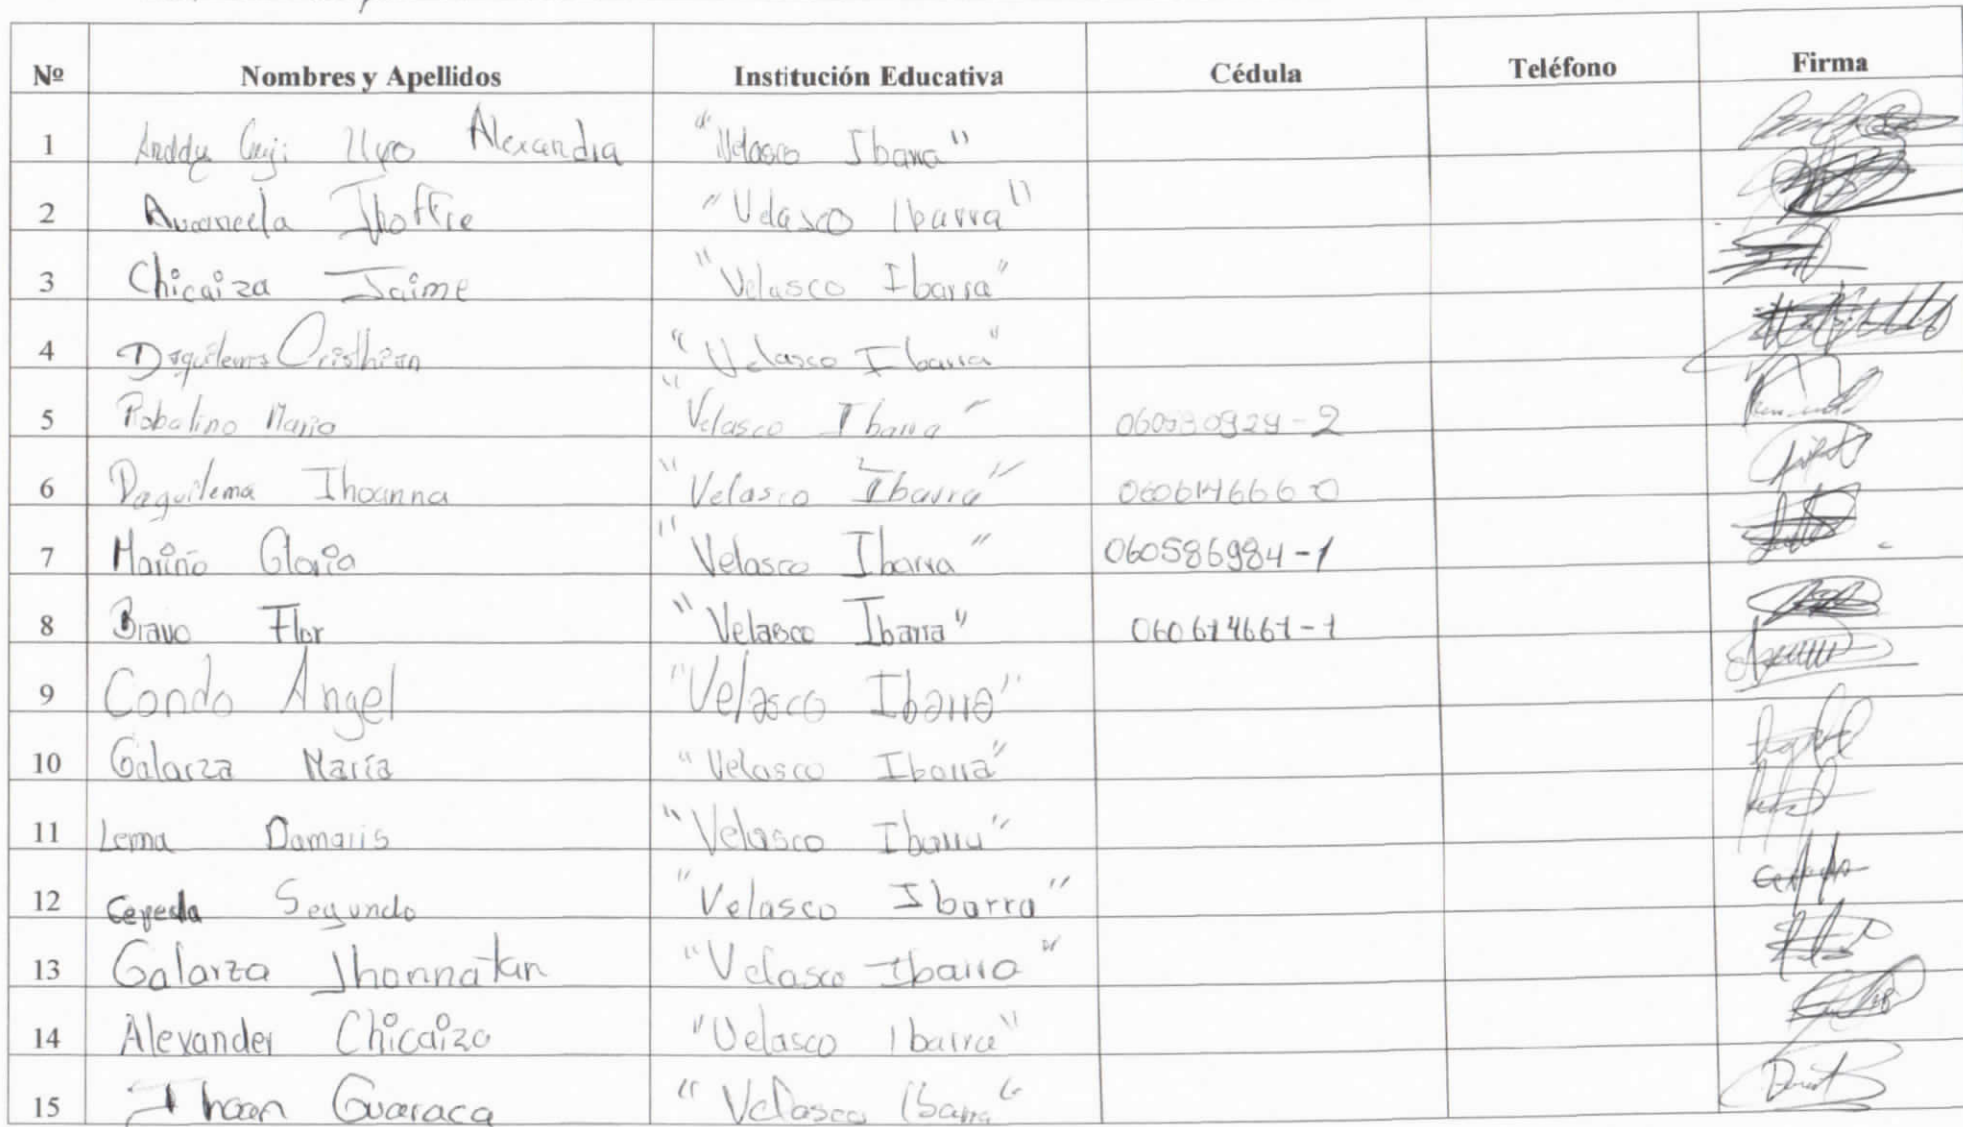 Nº Nombres y Apellidos Institución Educativa Cédula Teléfono Firma
1 Alexandra "Velasco Ibarra"
2 Jhoffre "Velasco Ibarra"
3 Chicaiza Jaime "Velasco Ibarra"
4 Daquilema Cristhian "Velasco Ibarra"
5 Robalino Maria "Velasco Ibarra"
6 Daquilema Jhoanna "Velasco Ibarra" 060614666-0
7 Mariño Gloria "Velasco Ibarra" 060586984-1
8 Bravo Flor "Velasco Ibarra" 060614661-1
9 Condo Angel "Velasco Ibarra"
10 Galarza María "Velasco Ibarra"
11 Lema Damaris "Velasco Ibarra"
12 Cepeda Segundo "Velasco Ibarra"
13 Galarza Jhonnatan "Velasco Ibarra"
14 Alexander Chicaiza "Velasco Ibarra"
15 Jhoan Guaraca "Velasco Ibarra"